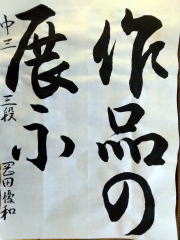 作品の
展示
中三 三段 岡田優和